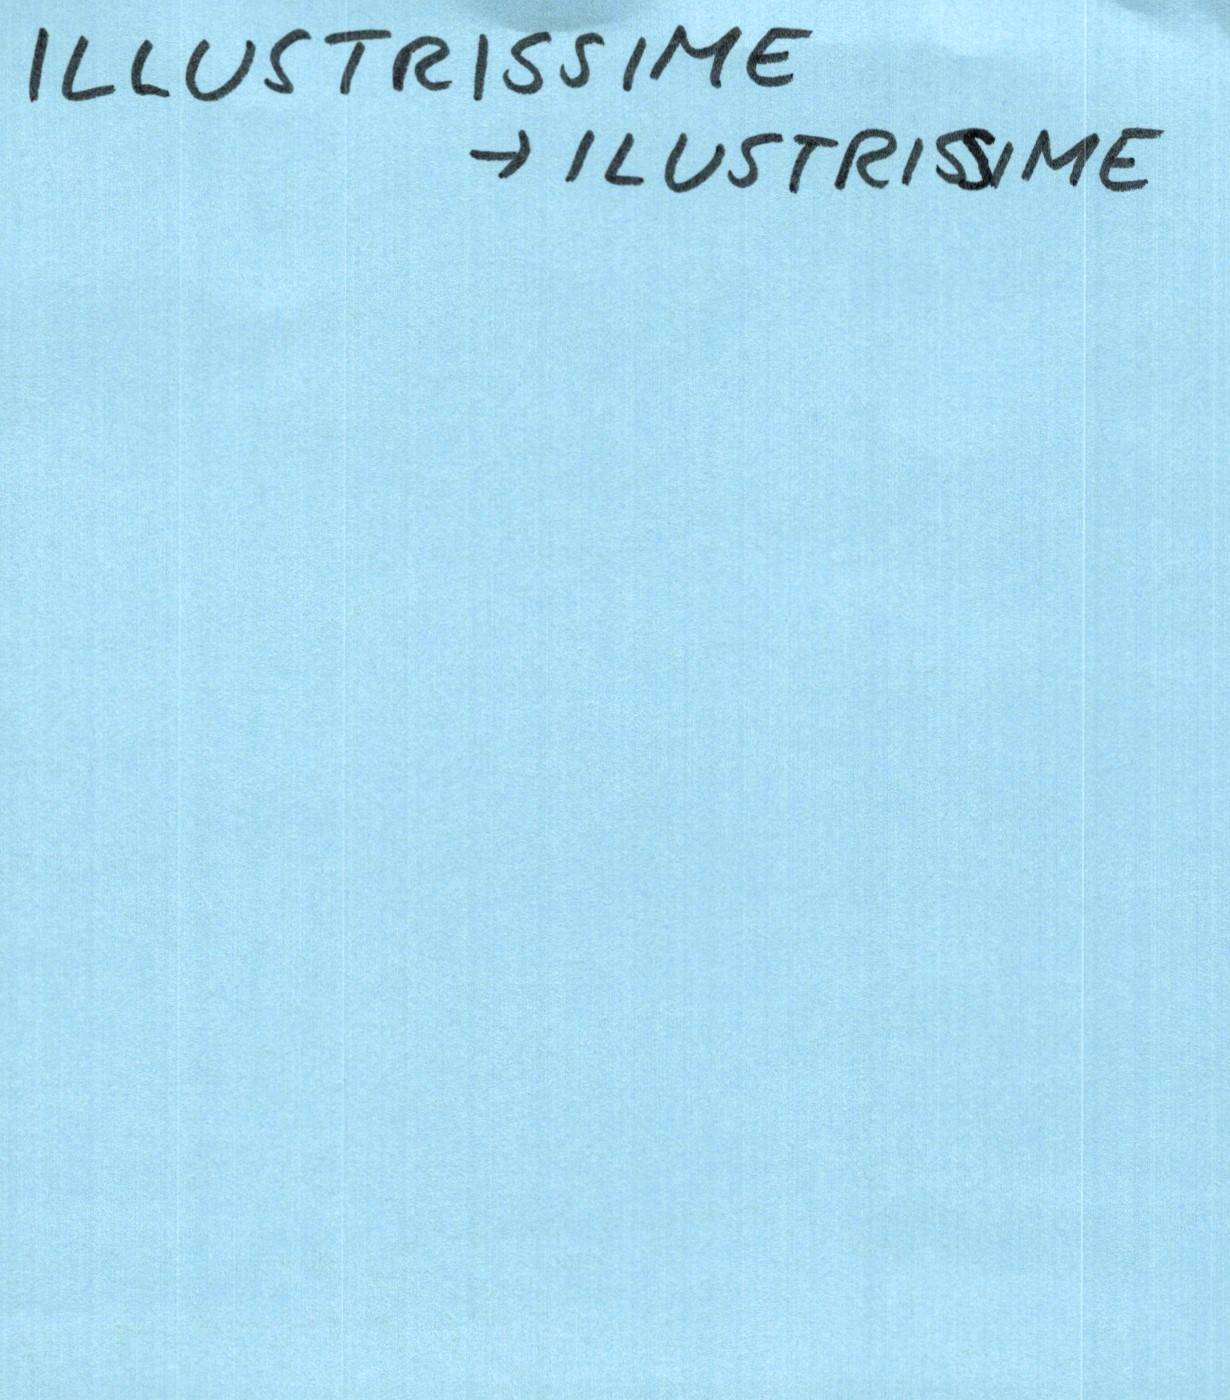 ILLUSTRISSIME
→ ILUSTRISSIME